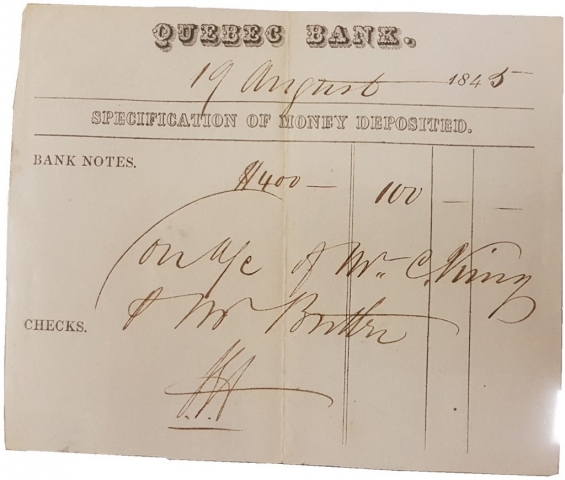 QUEBEC BANK.
19 August 1845
SPECIFICATION OF MONEY DEPOSITED.
BANK NOTES.
$400 — 100 — —
on a/c of Mr. C. King
CHECKS.
& Mr Butler